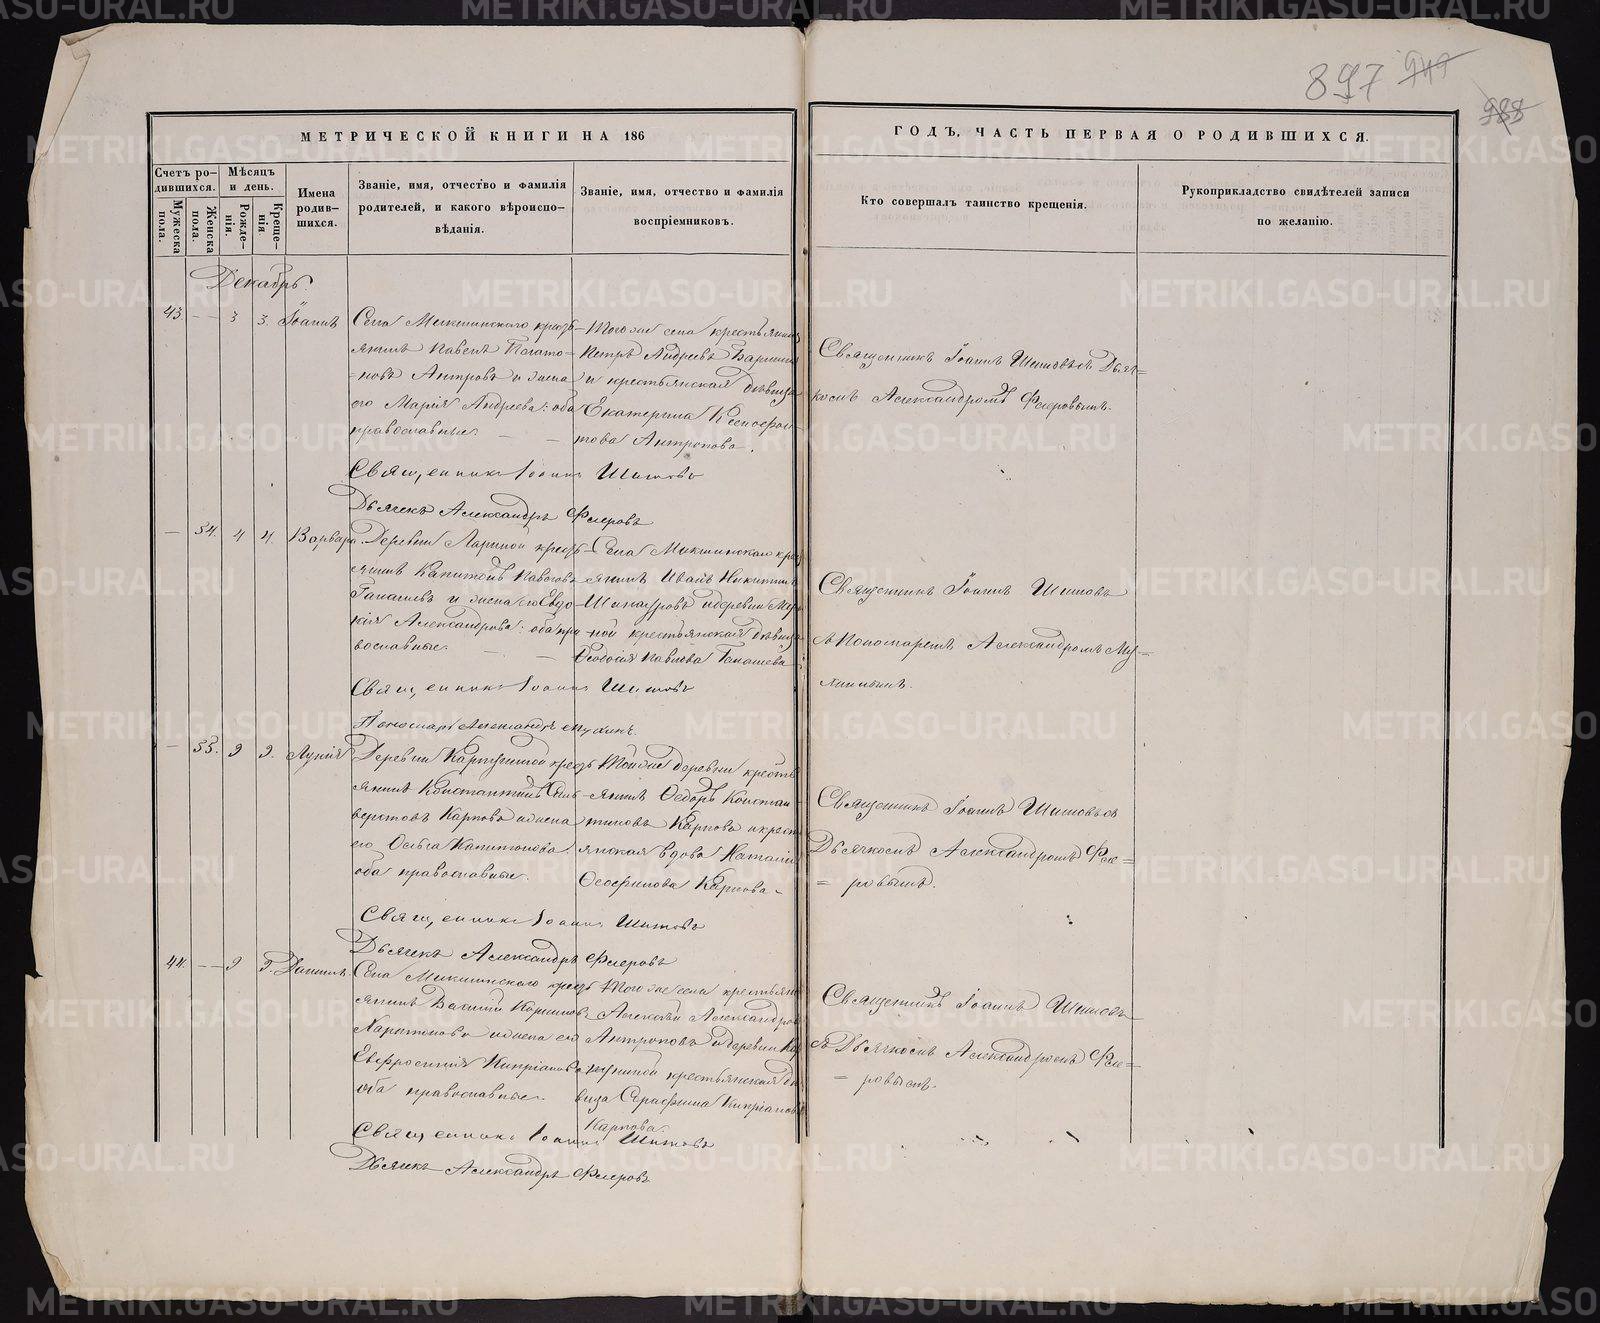 897 949
988
МЕТРИЧЕСКОЙ КНИГИ НА 186
ГОДЪ, ЧАСТЬ ПЕРВАЯ О РОДИВШИХСЯ.
Счетъ ро-
дившихся.
Мужеска
пола.
Женска
пола.
Мѣсяцъ
и день.
Рожде-
нія.
Креще-
нія.
Имена
родив-
шихся.
Званіе, имя, отчество и фамилія
родителей, и какого вѣроиспо-
вѣданія.
Званіе, имя, отчество и фамилія
воспріемниковъ.
Кто совершалъ таинство крещенія.
Рукоприкладство свидѣтелей записи
по желанію.
Декабрь
43 — — 3 3. Іоаннъ
Села Микшинскаго кресть-
янинъ Павелъ
и жена
его Марія Андреева: оба
православные.
Того же села крестьянинъ
Петръ Андреевъ
и крестьянская дѣвица
Екатерина Ксенофон-
това Антропова.
Священникъ Іоаннъ Шишовъ съ Дьяч=
комъ Александромъ Флеровымъ.
Священникъ Іоаннъ Шишовъ
Дьячекъ Александръ Флеровъ
— 54. 4 4. Варвара
Деревни Лариной кресть-
янинъ Капитонъ Павловъ
и жена его Евдо-
кія Александрова: оба пра-
вославные.
Села Микшинскаго крес
янинъ Иванъ Никитинъ
и деревни
ной крестьянская дѣвица
Ѳеодосія Павлова
Священникъ Іоаннъ Шишовъ
съ Пономаремъ Александромъ Му=
линымъ.
Священникъ Іоаннъ Шишовъ
Пономарь Александръ
— 55. 9 9. Лукія
Деревни кресть
янинъ Константинъ Силь-
верстовъ Карповъ и жена
его Ольга Капитонова:
оба православные.
Той же деревни кресть
янинъ Ѳедоръ Констан-
тиновъ Карповъ и крест
янская вдова Наталія
Карпова.
Священникъ Іоаннъ Шишовъ съ
Дьячкомъ Александромъ Фле=
= ровымъ.
Священникъ Іоаннъ Шишовъ
Дьячекъ Александръ Флеровъ
44. — — 9 9. Даниилъ
Села Микшинскаго кресть
янинъ Василій
Харитоновъ и жена его
Евфросинія Кипріанова
оба православные.
Того же села крестьян
Алексѣй Александров
Антроповъ и деревни Ка
крестьянская дѣ
вица Серафима Кипріанова
Карпова.
Священникъ Іоаннъ Шишовъ
съ Дьячкомъ Александромъ Фле=
= ровымъ.
Священникъ Іоаннъ Шишовъ
Дьячекъ Александръ Флеровъ
METRIKI.GASO-URAL.RU